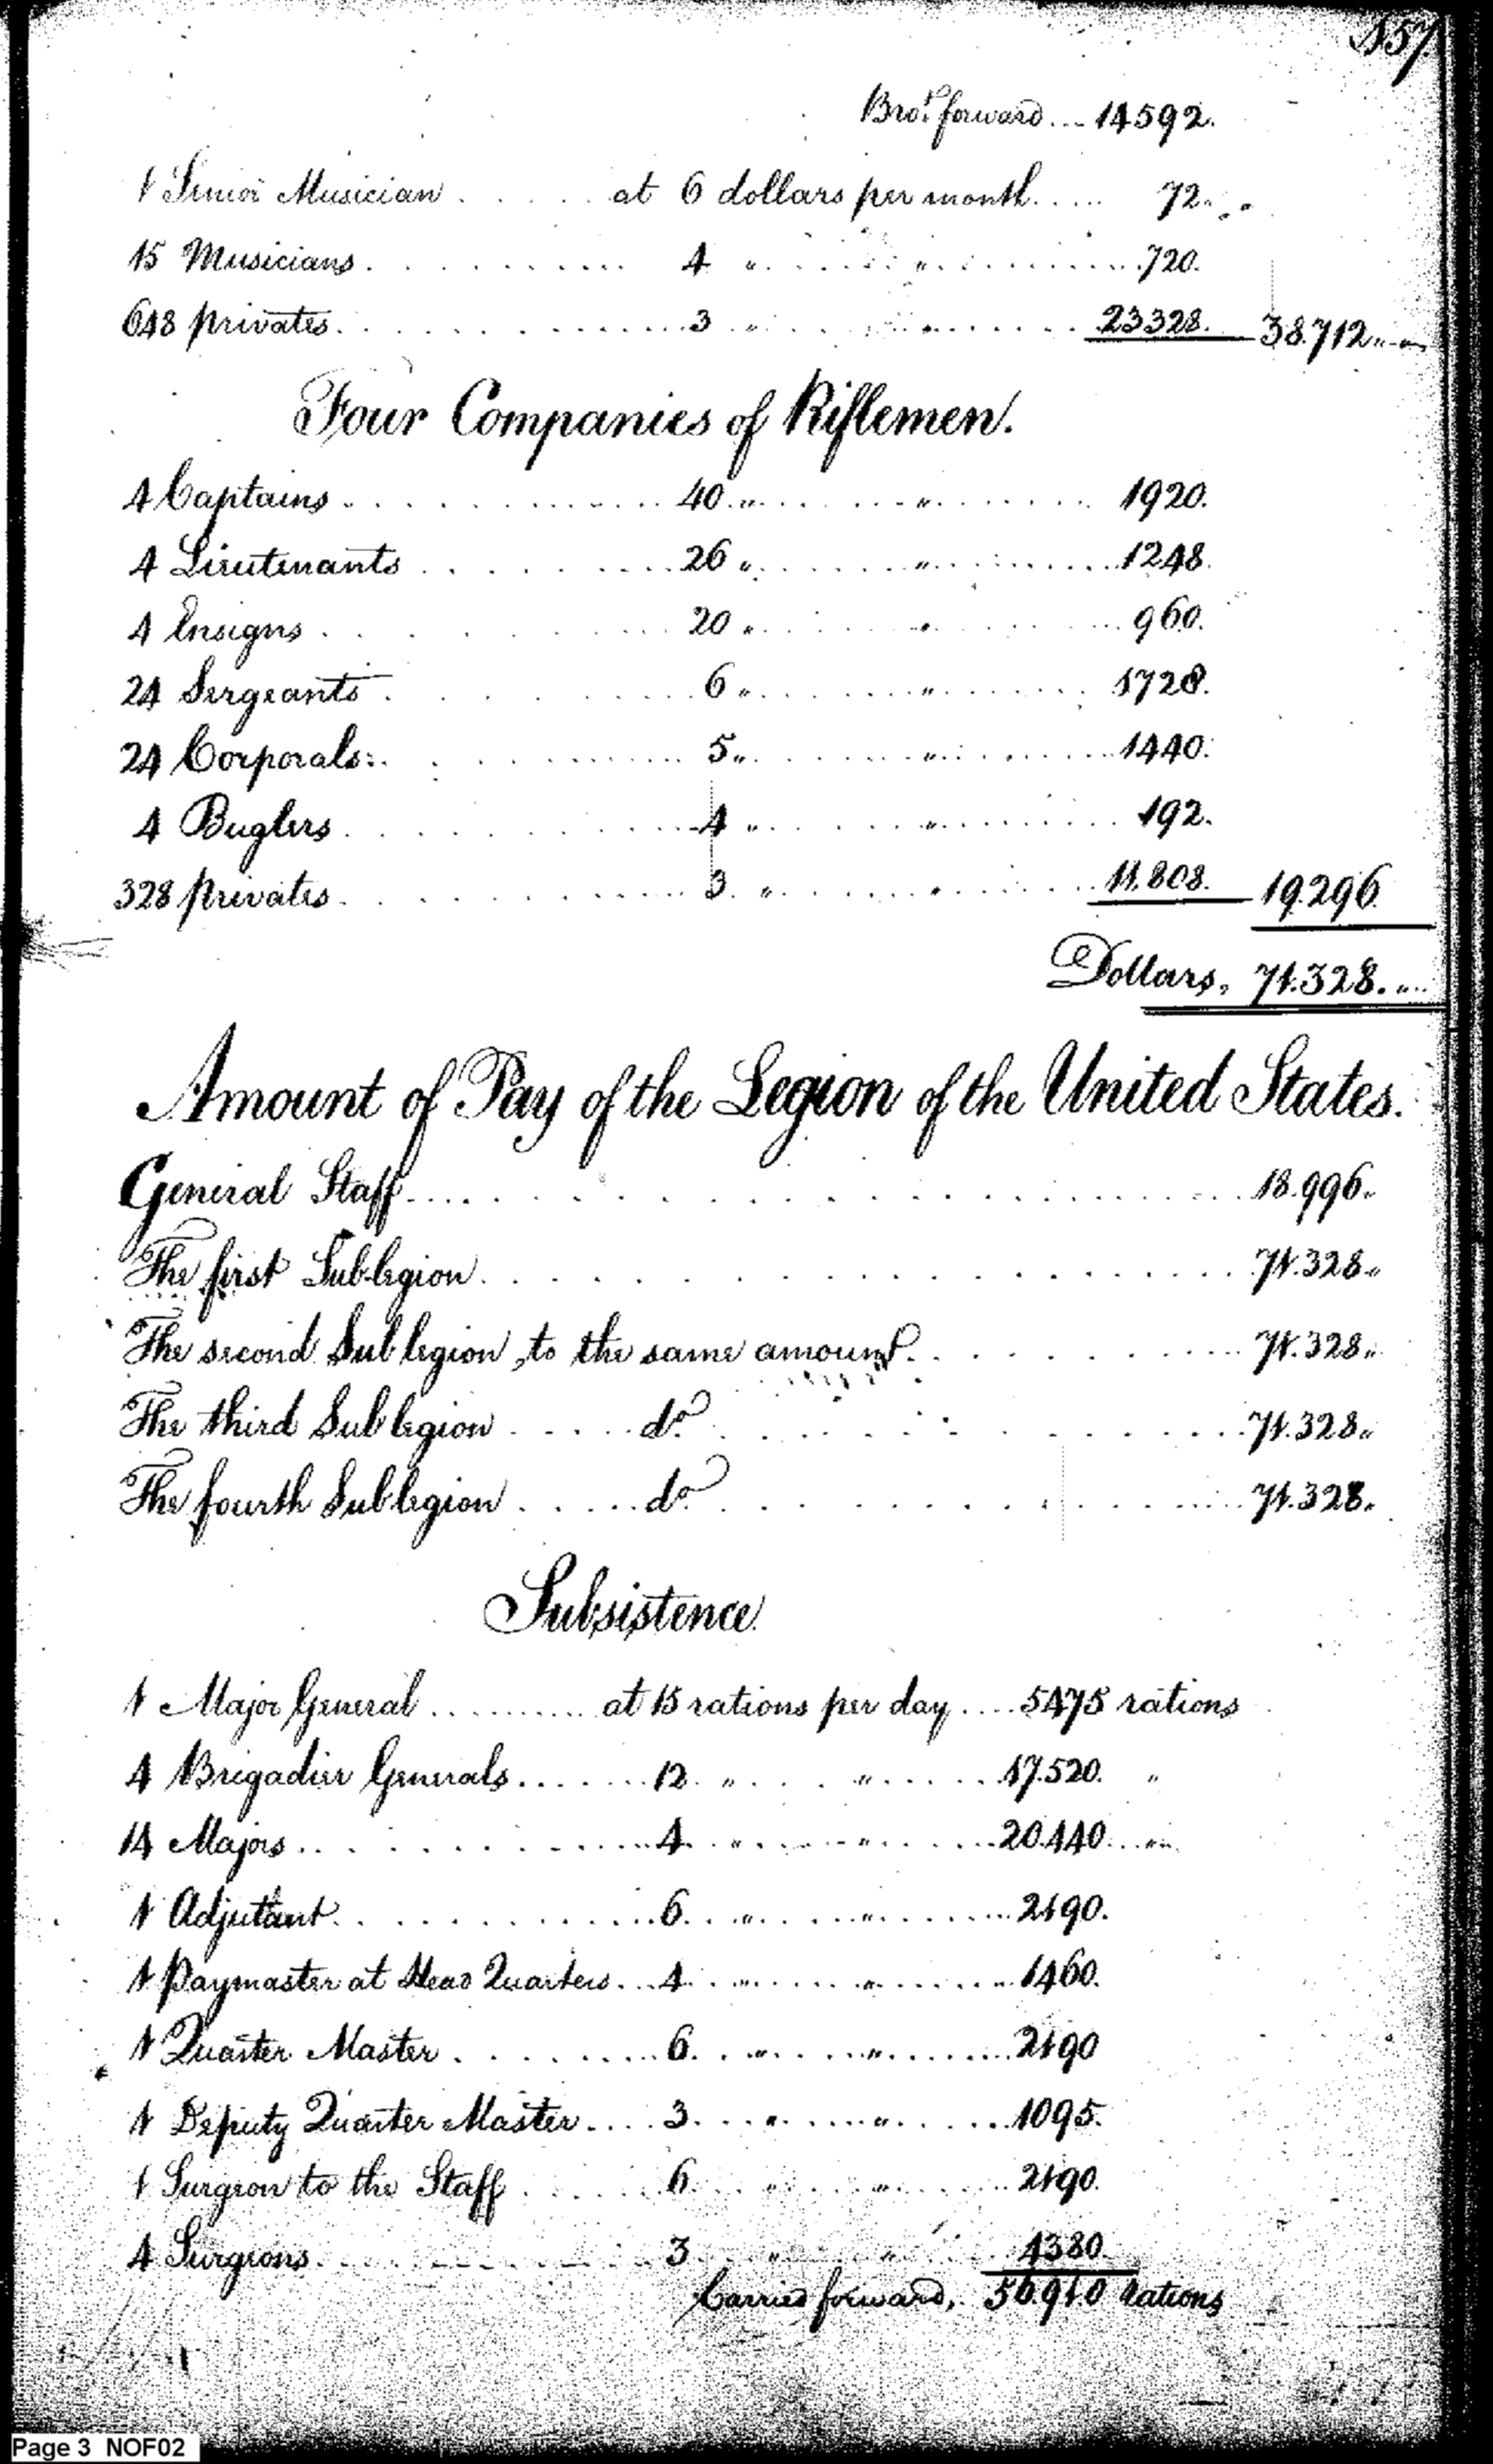 157.
Bro.t forward ... 14592.
1 Senior Musician . . . . . at 6 dollars per month . . . . . 72 " "
15 Musicians . . . . . 4 " . . . . . " . . . . . 720.
648 privates . . . . . 3 " . . . . . " . . . . . 23328. 38.712 " "
Four Companies of Riflemen.
4 Captains . . . . . 40 " . . . . . " . . . . . 1920.
4 Lieutenants . . . . . 26 " . . . . . " . . . . . 1248.
4 Ensigns . . . . . 20 " . . . . . " . . . . . 960.
24 Sergeants . . . . . 6 " . . . . . " . . . . . 1728.
24 Corporals . . . . . 5 " . . . . . " . . . . . 1440.
4 Buglers . . . . . 4 " . . . . . " . . . . . 192.
328 privates . . . . . 3 " . . . . . " . . . . . 11.808. 19.296
Dollars, 71.328. "
Amount of Pay of the Legion of the United States.
General Staff . . . . . 18.996 "
The first Sub-legion . . . . . 71.328 "
The second Sub legion, to the same amount . . . . . 71.328 "
The third Sub legion . . . . . do. . . . . . 71.328 "
The fourth Sub legion . . . . . do. . . . . . 71.328 "
Subsistence
1 Major General . . . . . at 15 rations per day . . . . 5475 rations
4 Brigadier Generals . . . . . 12 " . . . . . " . . . . . 17.520. "
14 Majors . . . . . 4 " . . . . . " . . . . . 20.440 . . . "
1 Adjutant . . . . . 6 " . . . . . " . . . . . 2190.
1 Paymaster at Head Quarters . . . 4 " . . . . . " . . . . . 1460.
1 Quarter Master . . . . . 6 " . . . . . " . . . . . 2190
1 Deputy Quarter Master . . . . 3 " . . . . . " . . . . . 1095.
1 Surgeon to the Staff . . . . . 6 " . . . . . " . . . . . 2190.
4 Surgeons . . . . . 3 " . . . . . " . . . . . 4380.
Carried forward, 56.940 Rations
Page 3 NOF02